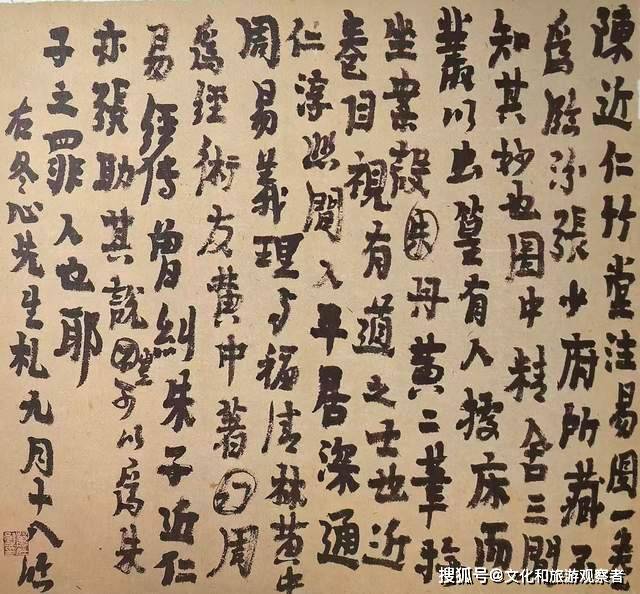 陳近仁竹堂注易圖一卷
為臨沂張少府所藏予
知其抄也圖中精舍三間
叢蔽以出篁有人撥床而
坐案設朱丹黃二筆拾
卷目視有道之士也近
仁淳熙間人平居深通
周易義理与福清林黃中
為經術友黃中著周
易經傳曾糾朱子近仁
亦張助其說豈可以為朱
子之罪人也耶
右冬心先生札九月十八臨
搜狐号@文化和旅游观察者